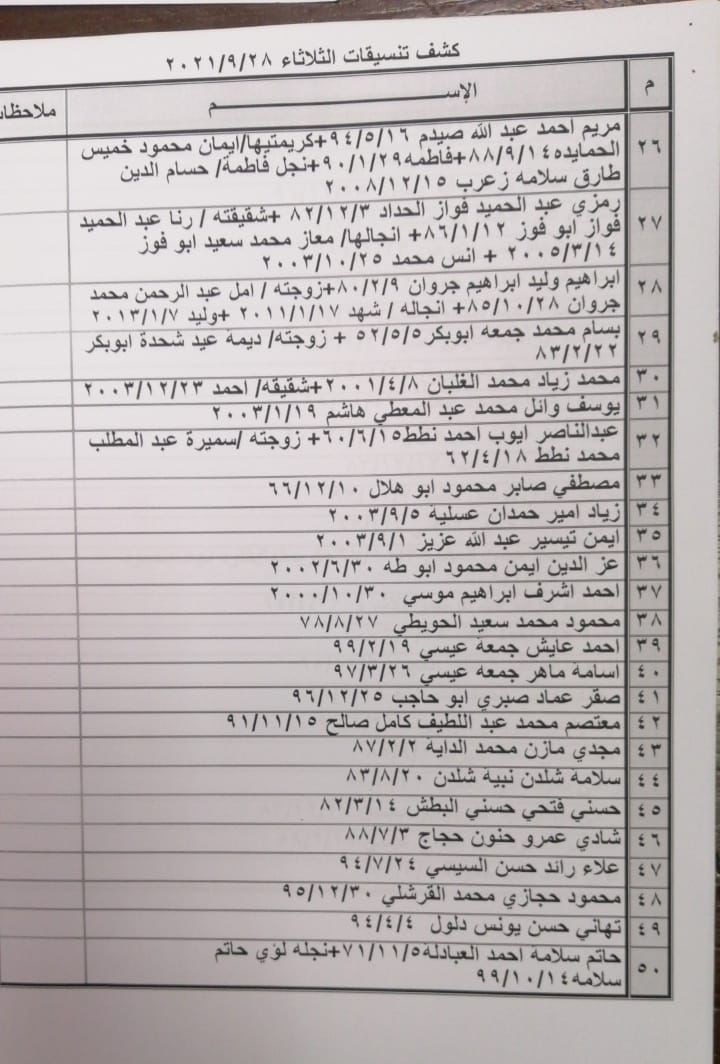 كشف تنسيقات الثلاثاء ٢٠٢١/٩/٢٨
م الإســـــــــم ملاحظات
٢٦ مريم احمد عبد الله صيدم ٩٤/٥/١٦+كريمتيها/ايمان محمود خميس
الحمايده٨٨/٩/١٤+فاطمه٩٠/١/٢٩+نجل فاطمة/ حسام الدين
طارق سلامه زعرب ٢٠٠٨/١٢/١٥
٢٧ رمزي عبد الحميد فواز الحداد ٨٢/١٢/٣ +شقيقته / رنا عبد الحميد
فواز ابو فوز ٨٦/١/١٢+ انجالها/ معاز محمد سعيد ابو فوز
٢٠٠٥/٣/١٤ + انس محمد ٢٠٠٣/١٠/٢٥
٢٨ ابراهيم وليد ابراهيم جروان ٨٠/٢/٩+زوجته / امل عبد الرحمن محمد
جروان ٨٥/١٠/٢٨+ انجاله / شهد ٢٠١١/١/١٧ +وليد ٢٠١٣/١/٧
٢٩ بسام محمد جمعه ابوبكر٥٢/٥/٥ + زوجته/ ديمة عيد شحدة ابوبكر
٨٣/٢/٢٢
٣٠ محمد زياد محمد الغلبان ٢٠٠١/٤/٨+شقيقه/ احمد ٢٠٠٣/١٢/٢٣
٣١ يوسف وائل محمد عبد المعطي هاشم ٢٠٠٣/١/١٩
٣٢ عبدالناصر ايوب احمد نطط٦٠/٦/١٥+ زوجته /سميرة عبد المطلب
محمد نطط ٦٢/٤/١٨
٣٣ مصطفي صابر محمود ابو هلال ٦٦/١٢/١٠
٣٤ زياد امير حمدان عسلية ٢٠٠٣/٩/٥
٣٥ ايمن تيسير عبد الله عزيز ٢٠٠٣/٩/١
٣٦ عز الدين ايمن محمود ابو طه ٢٠٠٢/٦/٣٠
٣٧ احمد اشرف ابراهيم موسي ٢٠٠٠/١٠/٣٠
٣٨ محمود محمد سعيد الحويطي ٧٨/٨/٢٧
٣٩ احمد عايش جمعة عيسي ٩٩/٢/١٩
٤٠ اسامة ماهر جمعه عيسي ٩٧/٣/٢٦
٤١ صقر عماد صبري ابو حاجب ٩٦/١٢/٢٥
٤٢ معتصم محمد عبد اللطيف كامل صالح ٩١/١١/١٥
٤٣ مجدي مازن محمد الداية ٨٧/٢/٢
٤٤ سلامة شلدن نبية شلدن ٨٣/٨/٢٠
٤٥ حسني فتحي حسني البطش ٨٢/٣/١٤
٤٦ شادي عمرو حنون حجاج ٨٨/٧/٣
٤٧ علاء رائد حسن السيسي ٩٤/٧/٢٤
٤٨ محمود حجازي محمد القرشلي ٩٥/١٢/٣٠
٤٩ تهاني حسن يونس دلول ٩٤/٤/٤
٥٠ حاتم سلامة احمد العبادلة٧١/١١/٥+نجله لؤي حاتم
سلامه٩٩/١٠/١٤